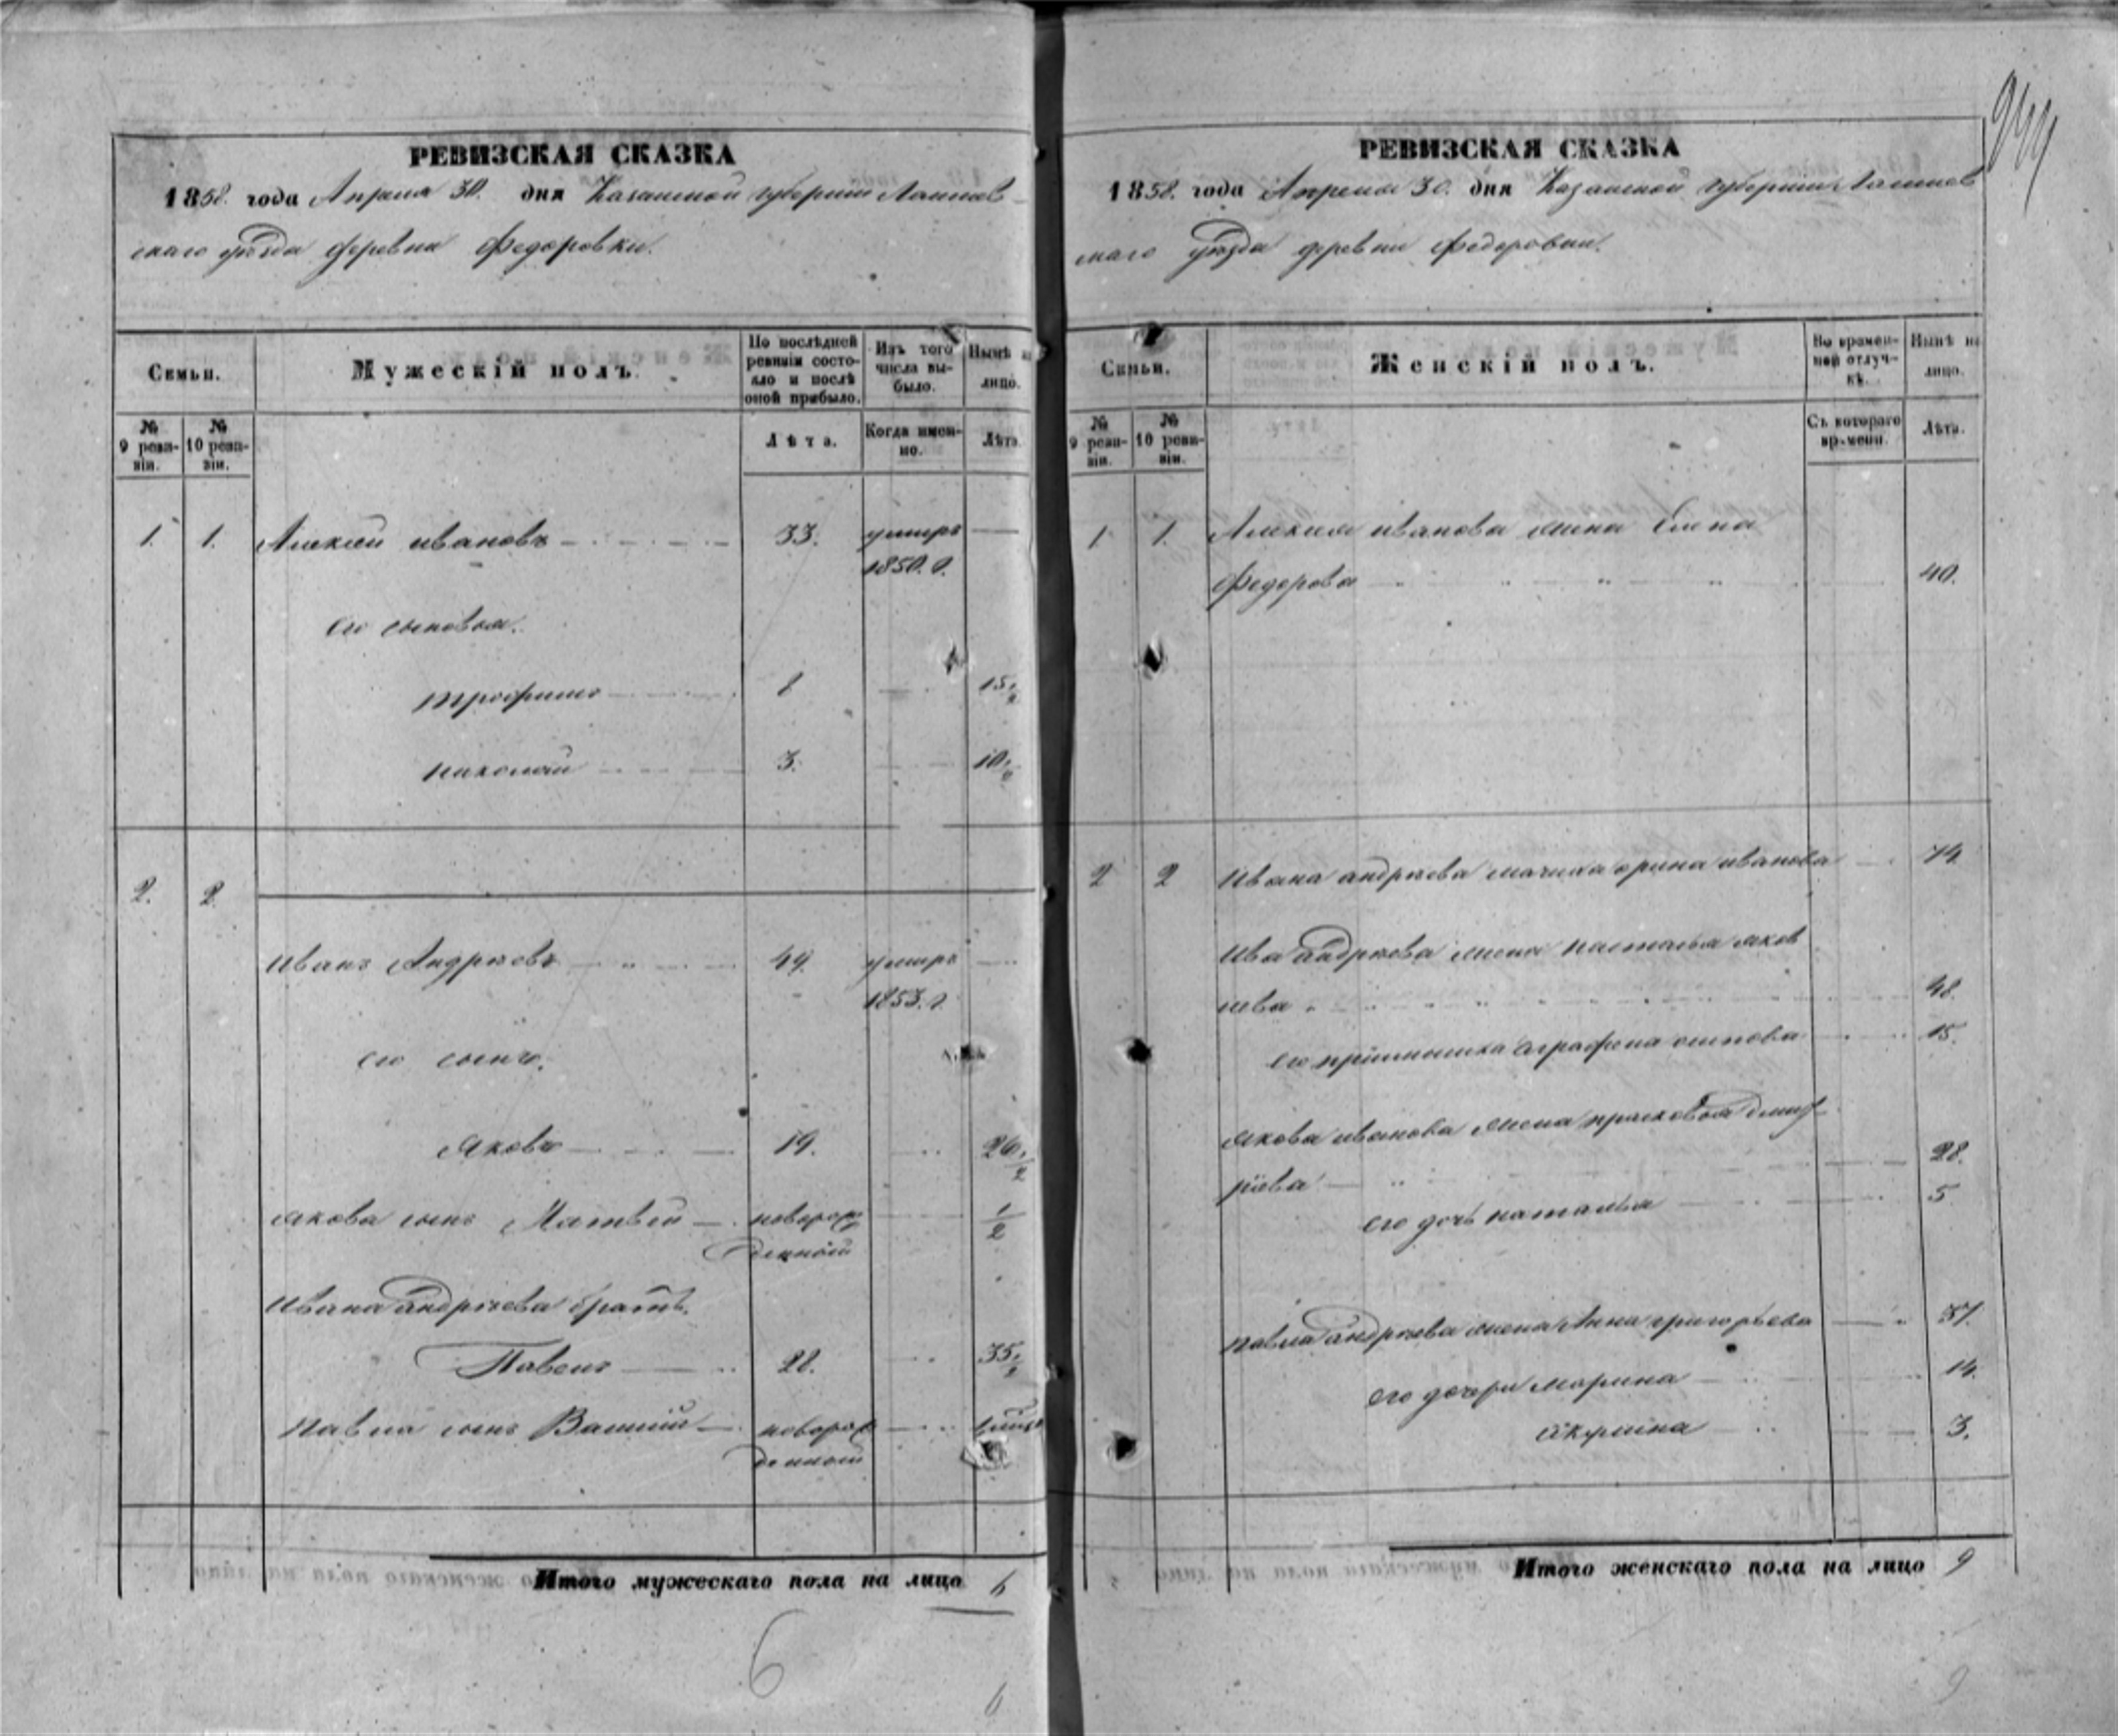 944
РЕВИЗСКАЯ СКАЗКА
1858. года Апреля 30. дня Казанской губернии Лаишев
скаго уѣзда деревни Федоровки.
Семьи.
Мужескій полъ.
По послѣдней ревизіи состояло и послѣ оной прибыло.
Изъ того числа выбыло.
Нынѣ на лицо.
№ 9 ревизіи.
№ 10 ревизіи.
Лѣта.
Когда именно.
Лѣта.
1. 1. Алексей ивановъ 33. умиръ —
1850. г.
его сыновья.
трофимъ 8 — 15 1/2
николай 3. — 10 1/2
2. 2.
иванъ Андреевъ 49. умиръ —
1853. г.
его сынъ.
яковъ 19. 26 1/2
якова сынъ Матвей — новорож 1/2
денной
ивана андреева братъ.
Павелъ 28. 35 1/2
павла сынъ новорож
денной
Итого мужескаго пола на лицо 6
6
6
РЕВИЗСКАЯ СКАЗКА
1858. года Апреля 30. дня Казанской губернии Лаишев
скаго уѣзда деревни Федоровки.
Семьи.
Женскій полъ.
Во временной отлучкѣ.
Нынѣ на лицо.
№ 9 ревизіи.
№ 10 ревизіи.
Съ котораго времени.
Лѣта.
1. 1. Алексея иванова жена Елена
Федорова 40.
2 2 ивана андреева мачиха орина иванова 74
Ива андреева жена наталья яков
лева 48.
его аграфена осипова 15.
якова иванова жена прасковья дмит
риева 28.
его дочь наталья 5
павла андреева жена Анна григорьева 37.
его дочери марина 14.
акулина 3.
Итого женскаго пола на лицо 9
9